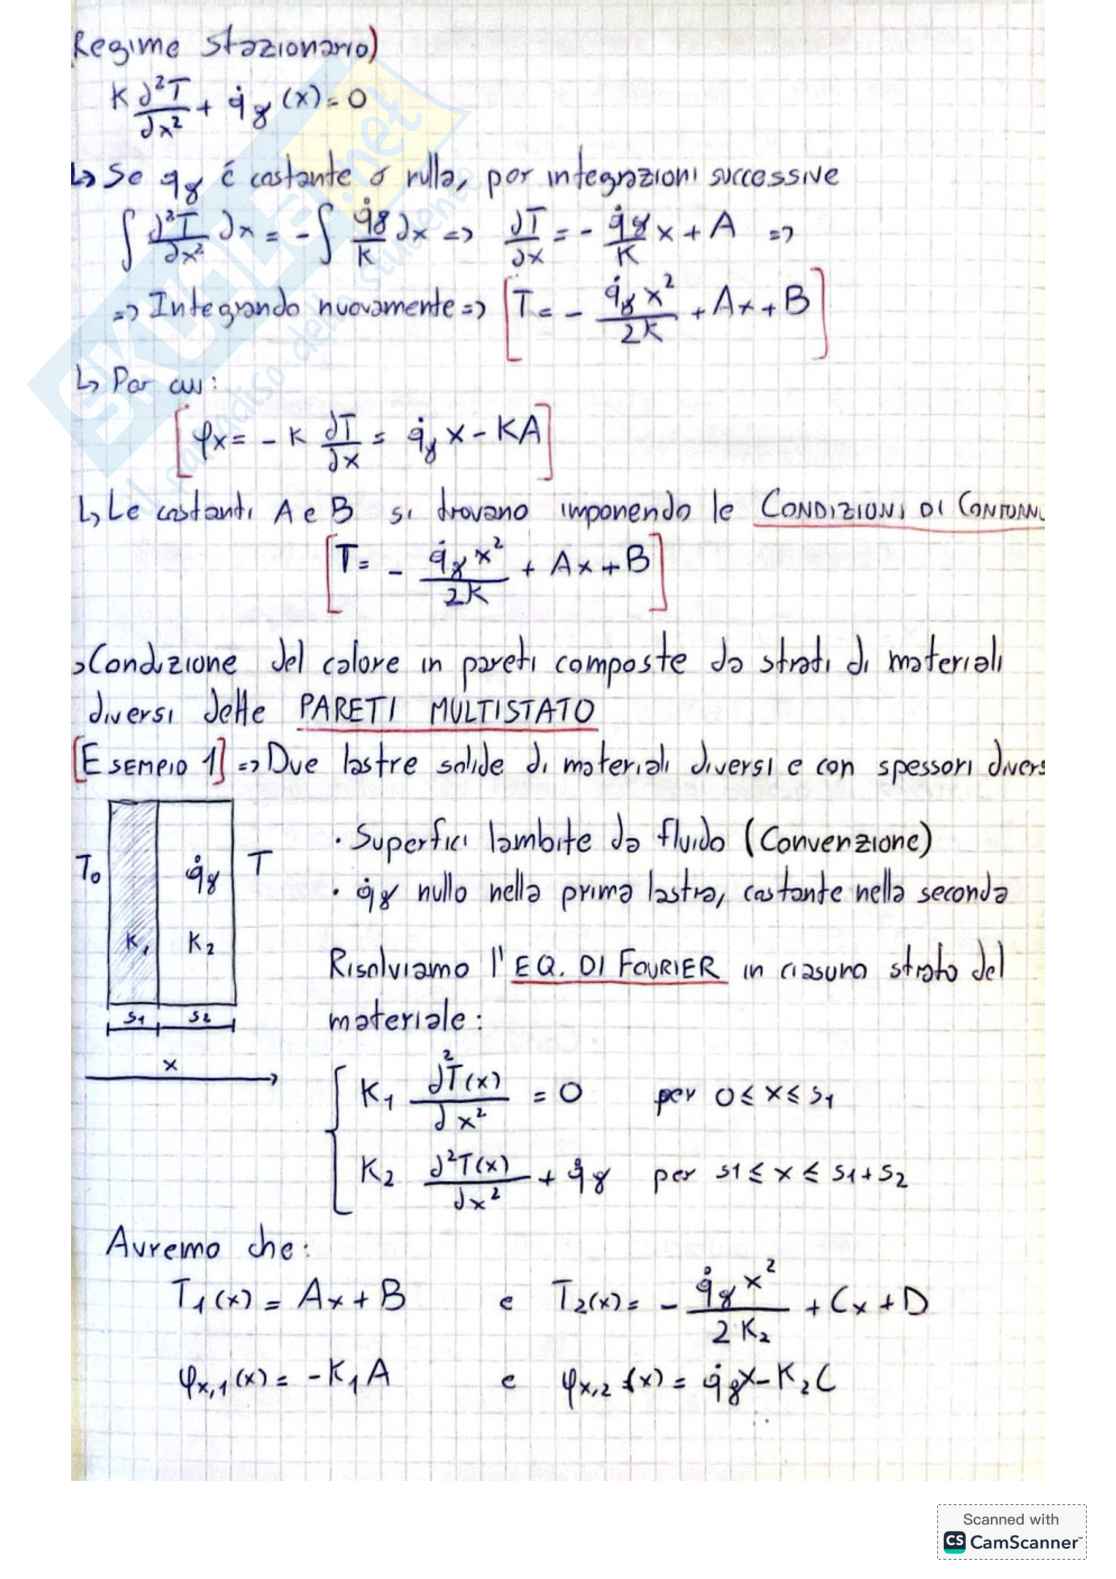 (Regime stazionario)
K ∂²T/∂x² + q̇g (x) = 0
↳ Se qg é costante o nulla, per integrazioni successive
∫ ∂²T/∂x² ∂x = - ∫ q̇g/K ∂x => ∂T/∂x = - q̇g/K x + A =>
=> Integrando nuovamente => [T = - q̇g x²/2K + Ax + B]
↳ Per cui:
[φx = - K ∂T/∂x = q̇g x - KA]
↳ Le costanti A e B si trovano imponendo le CONDIZIONI DI CONTORNO
[T = - q̇g x²/2K + Ax + B]
Conduzione del calore in pareti composte da strati di materiali
diversi dette PARETI MULTISTATO
[ESEMPIO 1] => Due lastre solide di materiali diversi e con spessori divers
T₀ q̇g T
K₁ K₂
s1 s2
x
· Superfici lambite da fluido (Convenzione)
· q̇g nullo nella prima lastra, costante nella seconda
Risolviamo l'EQ. DI FOURIER in ciasuno strato del
materiale:
K₁ ∂²T(x)/∂x² = 0 per 0 ≤ x ≤ s1
K₂ ∂²T(x)/∂x² + q̇g per s1 ≤ x ≤ s1 + s2
Avremo che:
T₁(x) = Ax + B e T₂(x) = - q̇g x²/2K₂ + Cx + D
φx,1(x) = -K₁A e φx,2(x) = q̇g x - K₂C
SKUOLA.net
Il paradiso dello studente
Scanned with
CS CamScanner